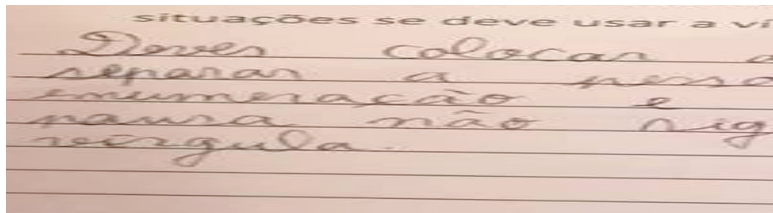 situações se deve usar a ví
Deves colocar a
separar a pesso
enumeração e
pausa não sig
vírgula.